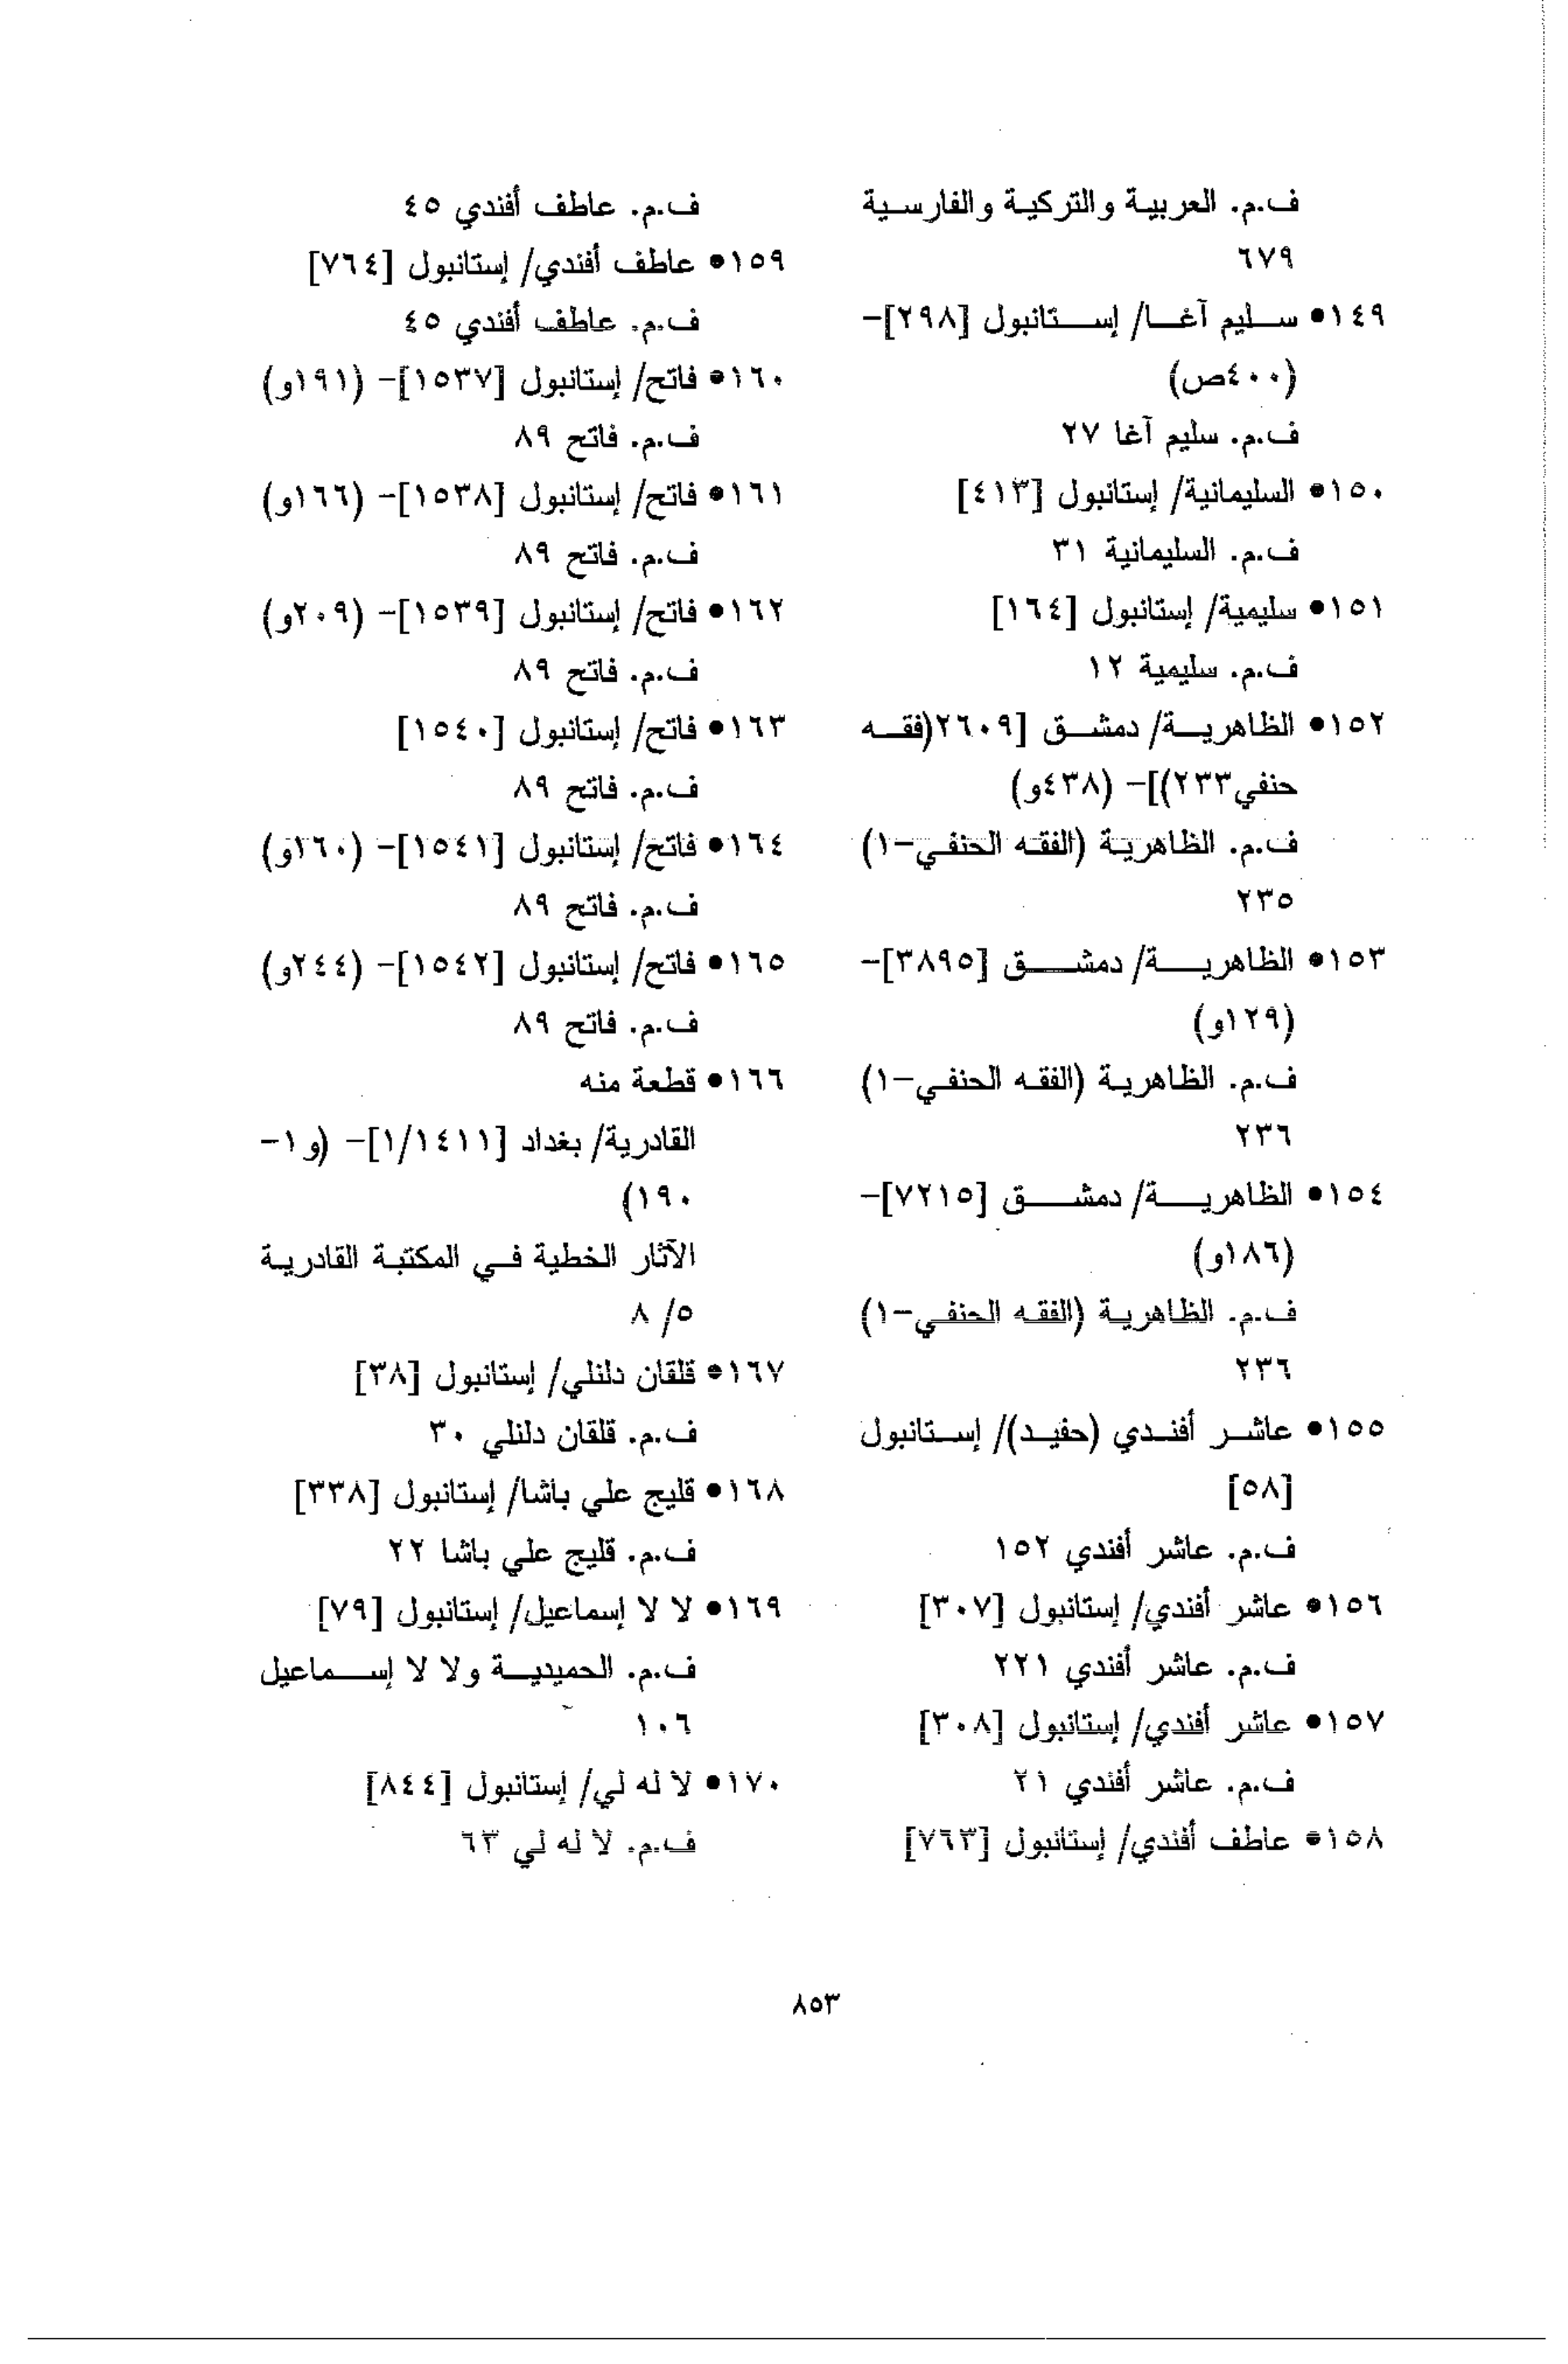 ف.م. العربية والتركية والفارسية
٦٧٩
١٤٩• سليم آغا/ إستانبول [٢٩٨]-
(٤٠٠ص)
ف.م. سليم آغا ٢٧
١٥٠• السليمانية/ إستانبول [٤١٣]
ف.م. السليمانية ٣١
١٥١• سليمية/ إستانبول [١٦٤]
ف.م. سليمية ١٢
١٥٢• الظاهرية/ دمشق [٢٦٠٩(فقه
حنفي٢٣٣)]- (٤٣٨و)
ف.م. الظاهرية (الفقه الحنفي-١)
٢٣٥
١٥٣• الظاهرية/ دمشق [٣٨٩٥]-
(١٢٩و)
ف.م. الظاهرية (الفقه الحنفي-١)
٢٣٦
١٥٤• الظاهرية/ دمشق [٧٢١٥]-
(١٨٦و)
ف.م. الظاهرية (الفقه الحنفي-١)
٢٣٦
١٥٥• عاشر أفندي (حفيد)/ إستانبول
[٥٨]
ف.م. عاشر أفندي ١٥٢
١٥٦• عاشر أفندي/ إستانبول [٣٠٧]
ف.م. عاشر أفندي ٢٢١
١٥٧• عاشر أفندي/ إستانبول [٣٠٨]
ف.م. عاشر أفندي ٢١
١٥٨• عاطف أفندي/ إستانبول [٧٦٣]
ف.م. عاطف أفندي ٤٥
١٥٩• عاطف أفندي/ إستانبول [٧٦٤]
ف.م. عاطف أفندي ٤٥
١٦٠• فاتح/ إستانبول [١٥٣٧]- (١٩١و)
ف.م. فاتح ٨٩
١٦١• فاتح/ إستانبول [١٥٣٨]- (١٦٦و)
ف.م. فاتح ٨٩
١٦٢• فاتح/ إستانبول [١٥٣٩]- (٢٠٩و)
ف.م. فاتح ٨٩
١٦٣• فاتح/ إستانبول [١٥٤٠]
ف.م. فاتح ٨٩
١٦٤• فاتح/ إستانبول [١٥٤١]- (١٦٠و)
ف.م. فاتح ٨٩
١٦٥• فاتح/ إستانبول [١٥٤٢]- (٢٤٤و)
ف.م. فاتح ٨٩
١٦٦• قطعة منه
القادرية/ بغداد [١/١٤١١]- (و١-
١٩٠)
الآثار الخطية في المكتبة القادرية
٥/ ٨
١٦٧• قلقان دلنلي/ إستانبول [٣٨]
ف.م. قلقان دلنلي ٣٠
١٦٨• قليج علي باشا/ إستانبول [٣٣٨]
ف.م. قليج علي باشا ٢٢
١٦٩• لا لا إسماعيل/ إستانبول [٧٩]
ف.م. الحميدية ولا لا إسماعيل
١٠٦
١٧٠• لا له لي/ إستانبول [٨٤٤]
ف.م. لا له لي ٦٣
٨٥٣